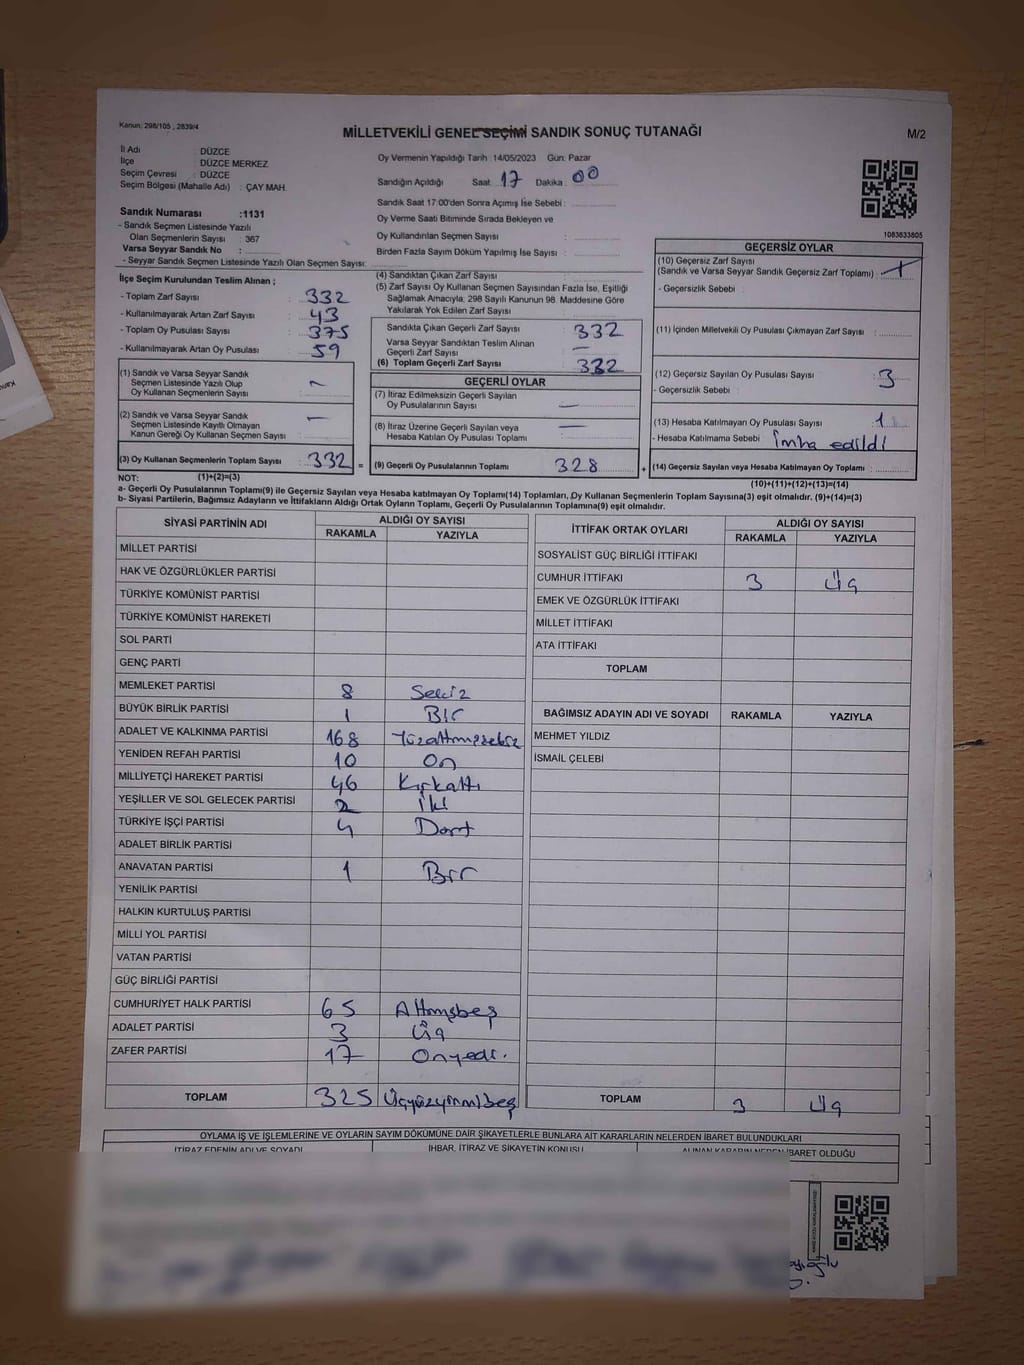 Kanun; 298/105 , 2839/4
MİLLETVEKİLİ GENEL SEÇİMİ SANDIK SONUÇ TUTANAĞI
M/2
İl Adı DÜZCE
İlçe DÜZCE MERKEZ
Seçim Çevresi : DÜZCE
Seçim Bölgesi (Mahalle Adı) : ÇAY MAH.
Oy Vermenin Yapıldığı Tarih :14/05/2023 Gün: Pazar
Sandığın Açıldığı Saat: 17 Dakika : 00
Sandık Saat 17:00'den Sonra Açımış İse Sebebi :
Oy Verme Saati Bitiminde Sırada Bekleyen ve
Oy Kullandırılan Seçmen Sayısı :
Birden Fazla Sayım Döküm Yapılmış İse Sayısı :
1083633805
Sandık Numarası :1131
- Sandık Seçmen Listesinde Yazılı
Olan Seçmenlerin Sayısı : 367
Varsa Seyyar Sandık No :
- Seyyar Sandık Seçmen Listesinde Yazılı Olan Seçmen Sayısı:
İlçe Seçim Kurulundan Teslim Alınan ;
- Toplam Zarf Sayısı : 332
- Kullanılmayarak Artan Zarf Sayısı : 43
- Toplam Oy Pusulası Sayısı : 375
- Kullanılmayarak Artan Oy Pusulası : 59
(1) Sandık ve Varsa Seyyar Sandık
Seçmen Listesinde Yazılı Olup
Oy Kullanan Seçmen Sayısı : –
(2) Sandık ve Varsa Seyyar Sandık
Seçmen Listesinde Kayıtlı Olmayan
Kanun Gereği Oy Kullanan Seçmen Sayısı : –
(3) Oy Kullanan Seçmenlerin Toplam Sayısı : 332 =
(4) Sandıktan Çıkan Zarf Sayısı
(5) Zarf Sayısı Oy Kullanan Seçmen Sayısından Fazla İse, Eşitliği
Sağlamak Amacıyla; 298 Sayılı Kanunun 98. Maddesine Göre
Yakılarak Yok Edilen Zarf Sayısı :
Sandıkta Çıkan Geçerli Zarf Sayısı : 332
Varsa Seyyar Sandıktan Teslim Alınan
Geçerli Zarf Sayısı : –
(6) Toplam Geçerli Zarf Sayısı : 332
GEÇERLİ OYLAR
(7) İtiraz Edilmeksizin Geçerli Sayılan
Oy Pusulalarının Sayısı : –
(8) İtiraz Üzerine Geçerli Sayılan veya
Hesaba Katılan Oy Pusulaları Toplamı : –
(9) Geçerli Oy Pusulalarının Toplamı : 328 +
GEÇERSİZ OYLAR
(10) Geçersiz Zarf Sayısı
(Sandık ve Varsa Seyyar Sandık Geçersiz Zarf Toplamı) :
- Geçersizlik Sebebi :
(11) İçinden Milletvekili Oy Pusulası Çıkmayan Zarf Sayısı :
(12) Geçersiz Sayılan Oy Pusulası Sayısı : 3
- Geçersizlik Sebebi :
(13) Hesaba Katılmayan Oy Pusulası Sayısı : 1
- Hesaba Katılmama Sebebi : İmha edildi
(14) Geçersiz Sayılan veya Hesaba Katılmayan Oy Toplamı :
NOT: (1)+(2)=(3) (10)+(11)+(12)+(13)=(14)
a- Geçerli Oy Pusulalarının Toplamı(9) ile Geçersiz Sayılan veya Hesaba katılmayan Oy Toplamı(14) Toplamları, Oy Kullanan Seçmenlerin Toplam Sayısına(3) eşit olmalıdır. (9)+(14)=(3)
b- Siyasi Partilerin, Bağımsız Adayların ve İttifakların Aldığı Ortak Oyların Toplamı, Geçerli Oy Pusulalarının Toplamına(9) eşit olmalıdır.
SİYASİ PARTİNİN ADI ALDIĞI OY SAYISI
RAKAMLA YAZIYLA
MİLLET PARTİSİ
HAK VE ÖZGÜRLÜKLER PARTİSİ
TÜRKİYE KOMÜNİST PARTİSİ
TÜRKİYE KOMÜNİST HAREKETİ
SOL PARTİ
GENÇ PARTİ
MEMLEKET PARTİSİ 8 Sekiz
BÜYÜK BİRLİK PARTİSİ 1 Bir
ADALET VE KALKINMA PARTİSİ 168 Yüzaltmışsekiz
YENİDEN REFAH PARTİSİ 10 On
MİLLİYETÇİ HAREKET PARTİSİ 46 Kırkaltı
YEŞİLLER VE SOL GELECEK PARTİSİ 2 İki
TÜRKİYE İŞÇİ PARTİSİ 4 Dört
ADALET BİRLİK PARTİSİ
ANAVATAN PARTİSİ 1 Bir
YENİLİK PARTİSİ
HALKIN KURTULUŞ PARTİSİ
MİLLİ YOL PARTİSİ
VATAN PARTİSİ
GÜÇ BİRLİĞİ PARTİSİ
CUMHURİYET HALK PARTİSİ 65 Altmışbeş
ADALET PARTİSİ 3 Üç
ZAFER PARTİSİ 17 Onyedi.
TOPLAM 325 Üçyüzyirmibeş
İTTİFAK ORTAK OYLARI ALDIĞI OY SAYISI
RAKAMLA YAZIYLA
SOSYALİST GÜÇ BİRLİĞİ İTTİFAKI
CUMHUR İTTİFAKI 3 Üç
EMEK VE ÖZGÜRLÜK İTTİFAKI
MİLLET İTTİFAKI
ATA İTTİFAKI
TOPLAM
BAĞIMSIZ ADAYIN ADI VE SOYADI RAKAMLA YAZIYLA
MEHMET YILDIZ
İSMAİL ÇELEBİ
TOPLAM 3 Üç
OYLAMA İŞ VE İŞLEMLERİNE VE OYLARIN SAYIM DÖKÜMÜNE DAİR ŞİKAYETLERLE BUNLARA AİT KARARLARIN NELERDEN İBARET BULUNDUKLARI
İTİRAZ EDENİN ADI VE SOYADI İHBAR, İTİRAZ VE ŞİKAYETİN KONUSU ALINAN KARARIN NEDEN İBARET OLDUĞU